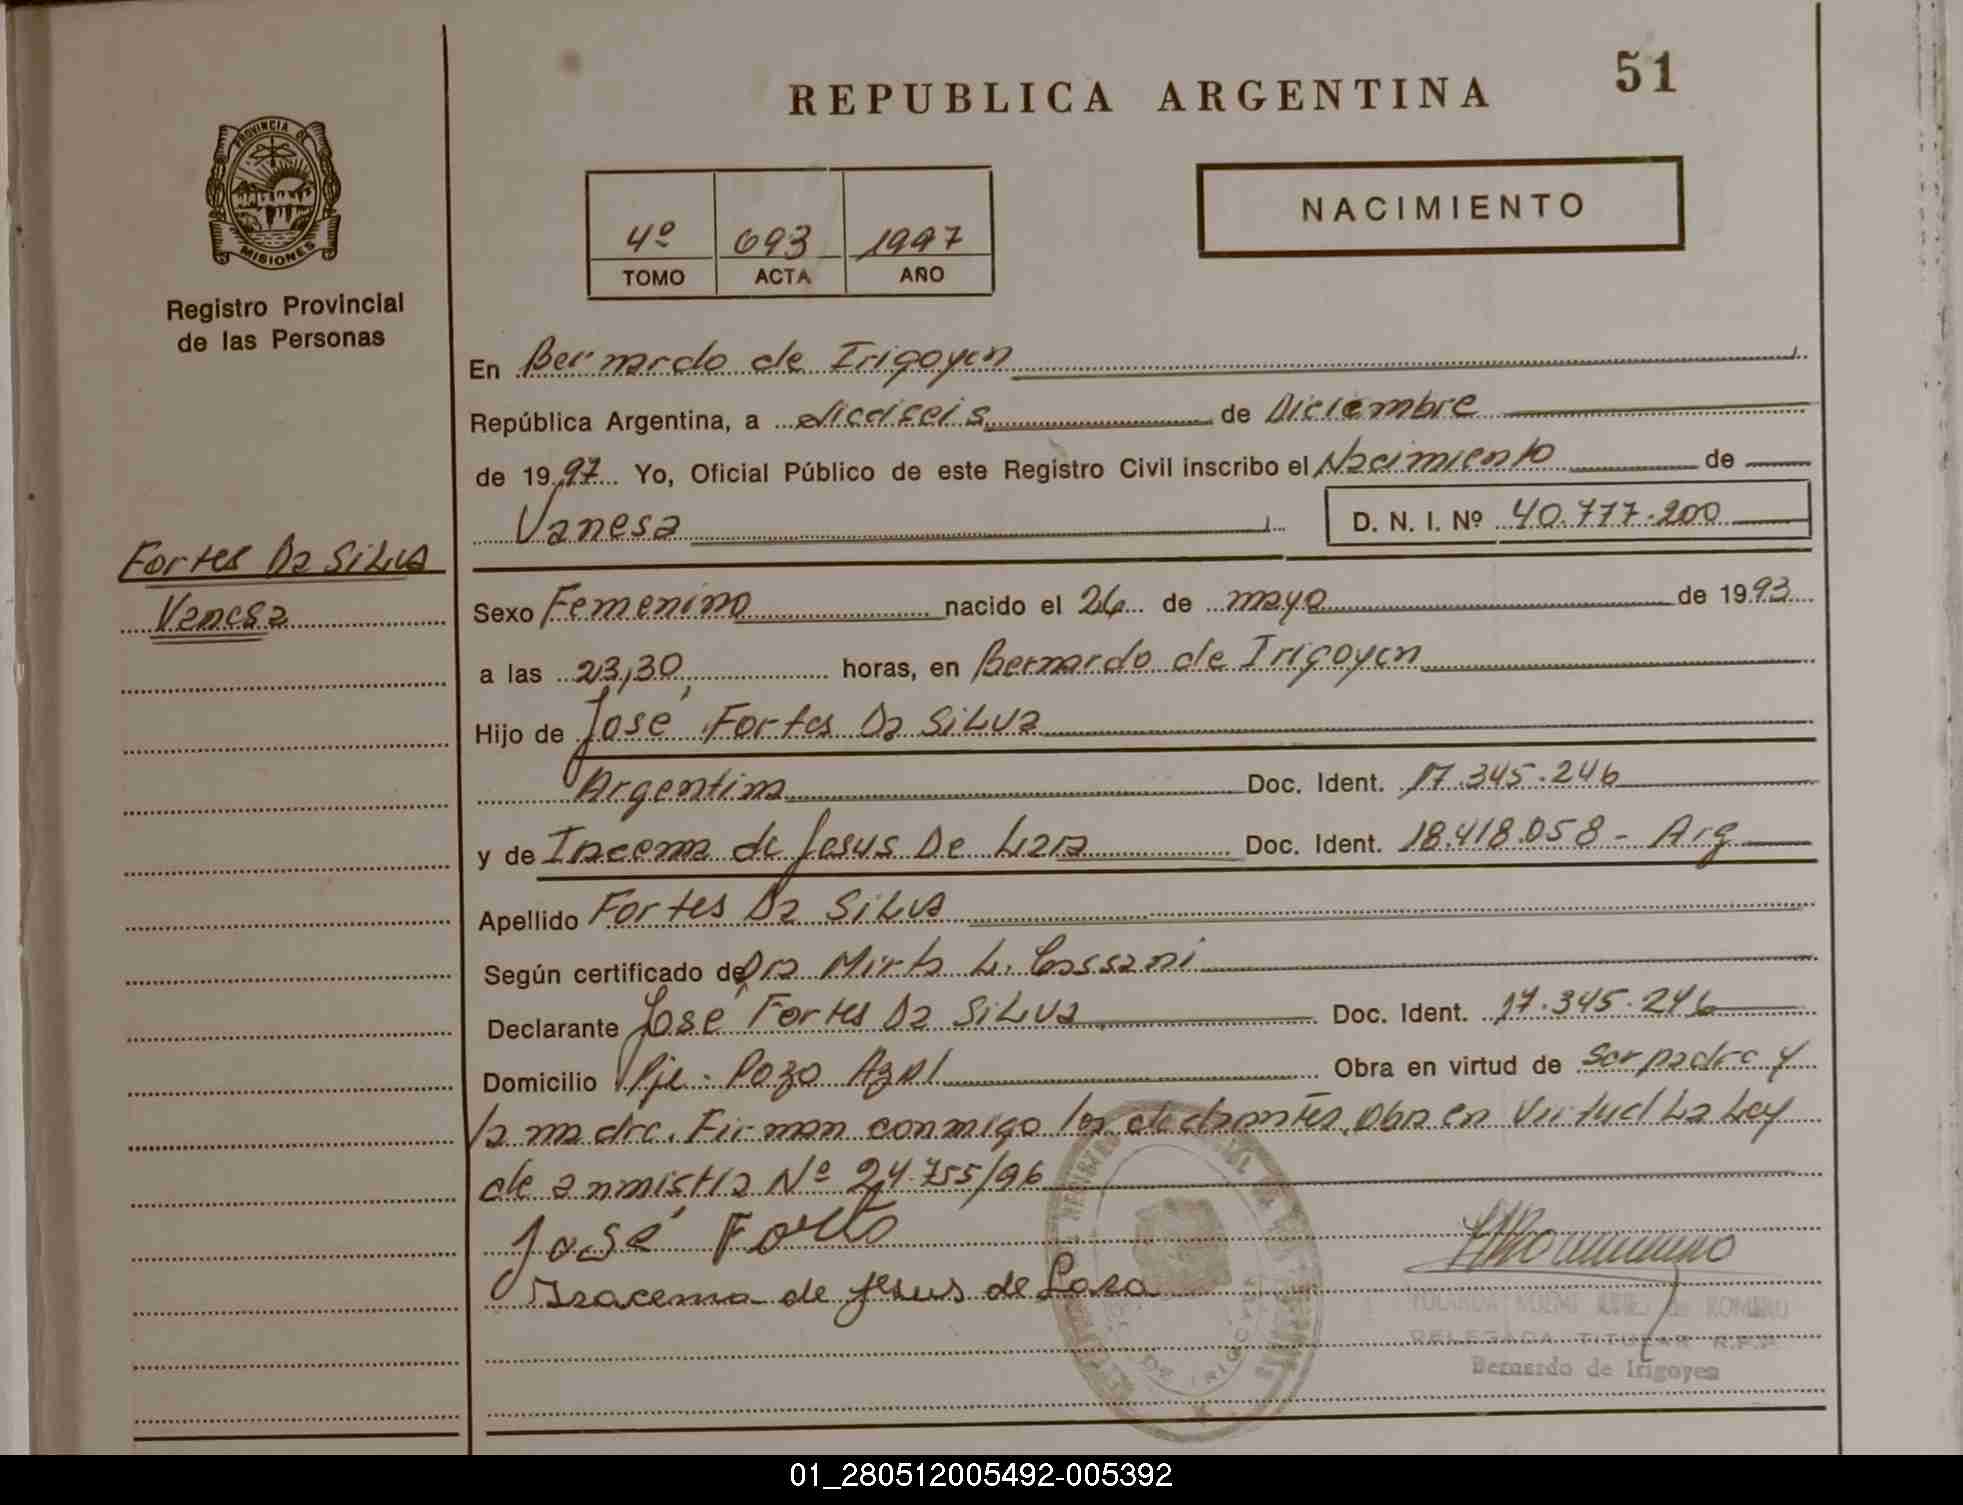 51
REPUBLICA ARGENTINA
NACIMIENTO
4º 693 1997
TOMO ACTA AÑO
PROVINCIA DE MISIONES
Registro Provincial
de las Personas
Fortes Da Silva
Vanesa
En Bernardo de Irigoyen
República Argentina, a dieciseis de Diciembre
de 1997 Yo, Oficial Público de este Registro Civil inscribo el Nacimiento de
Vanesa D. N. I. Nº 40.777.200
Sexo Femenino nacido el 26 de mayo de 1993
a las 23,30 horas, en Bernardo de Irigoyen
Hijo de José Fortes Da Silva
Argentina Doc. Ident. 17.345.246
y de Iracema de Jesus De Lara Doc. Ident. 18.418.058 - Arg
Apellido Fortes Da Silva
Según certificado de Dra Mirta L. Cassani
Declarante José Fortes Da Silva Doc. Ident. 17.345.246
Domicilio Pje. Pozo Azul Obra en virtud de Ser padre y
la madre. Firman conmigo los declarantes. Obra en Virtud La Ley
de anmistia Nº 24.755/96
José Forte
Iracema de Jesus de Lara
DE ROMERO
DELEGADA TITULAR R.P.P.
Bernardo de Irigoyen
01_280512005492-005392